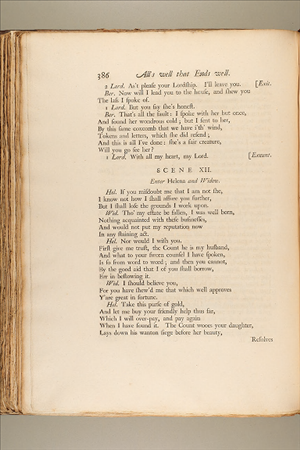 386 All's well that Ends well.
2 Lord. As't please your Lordship. I'll leave you. [Exit.
Ber. Now will I lead you to the house, and shew you
The lass I spoke of.
1 Lord. But you say she's honest.
Ber. That's all the fault: I spoke with her but once,
And found her wondrous cold; but I sent to her,
By this same coxcomb that we have i'th' wind,
Tokens and letters, which she did resend;
And this is all I've done: she's a fair creature,
Will you go see her?
1 Lord. With all my heart, my Lord. [Exeunt.
SCENE XII.
Enter Helena and Widow.
Hel. If you misdoubt me that I am not she,
I know not how I shall assure you further,
But I shall lose the grounds I work upon.
Wid. Tho' my estate be fallen, I was well born,
Nothing acquainted with these businesses,
And would not put my reputation now
In any staining act.
Hel. Nor would I wish you.
First give me trust, the Count he is my husband,
And what to your sworn counsel I have spoken,
Is so from word to word; and then you cannot,
By the good aid that I of you shall borrow,
Err in bestowing it.
Wid. I should believe you,
For you have shew'd me that which well approves
Y'are great in fortune.
Hel. Take this purse of gold,
And let me buy your friendly help thus far,
Which I will over-pay, and pay again
When I have found it. The Count wooes your daughter,
Lays down his wanton siege before her beauty,
Resolves